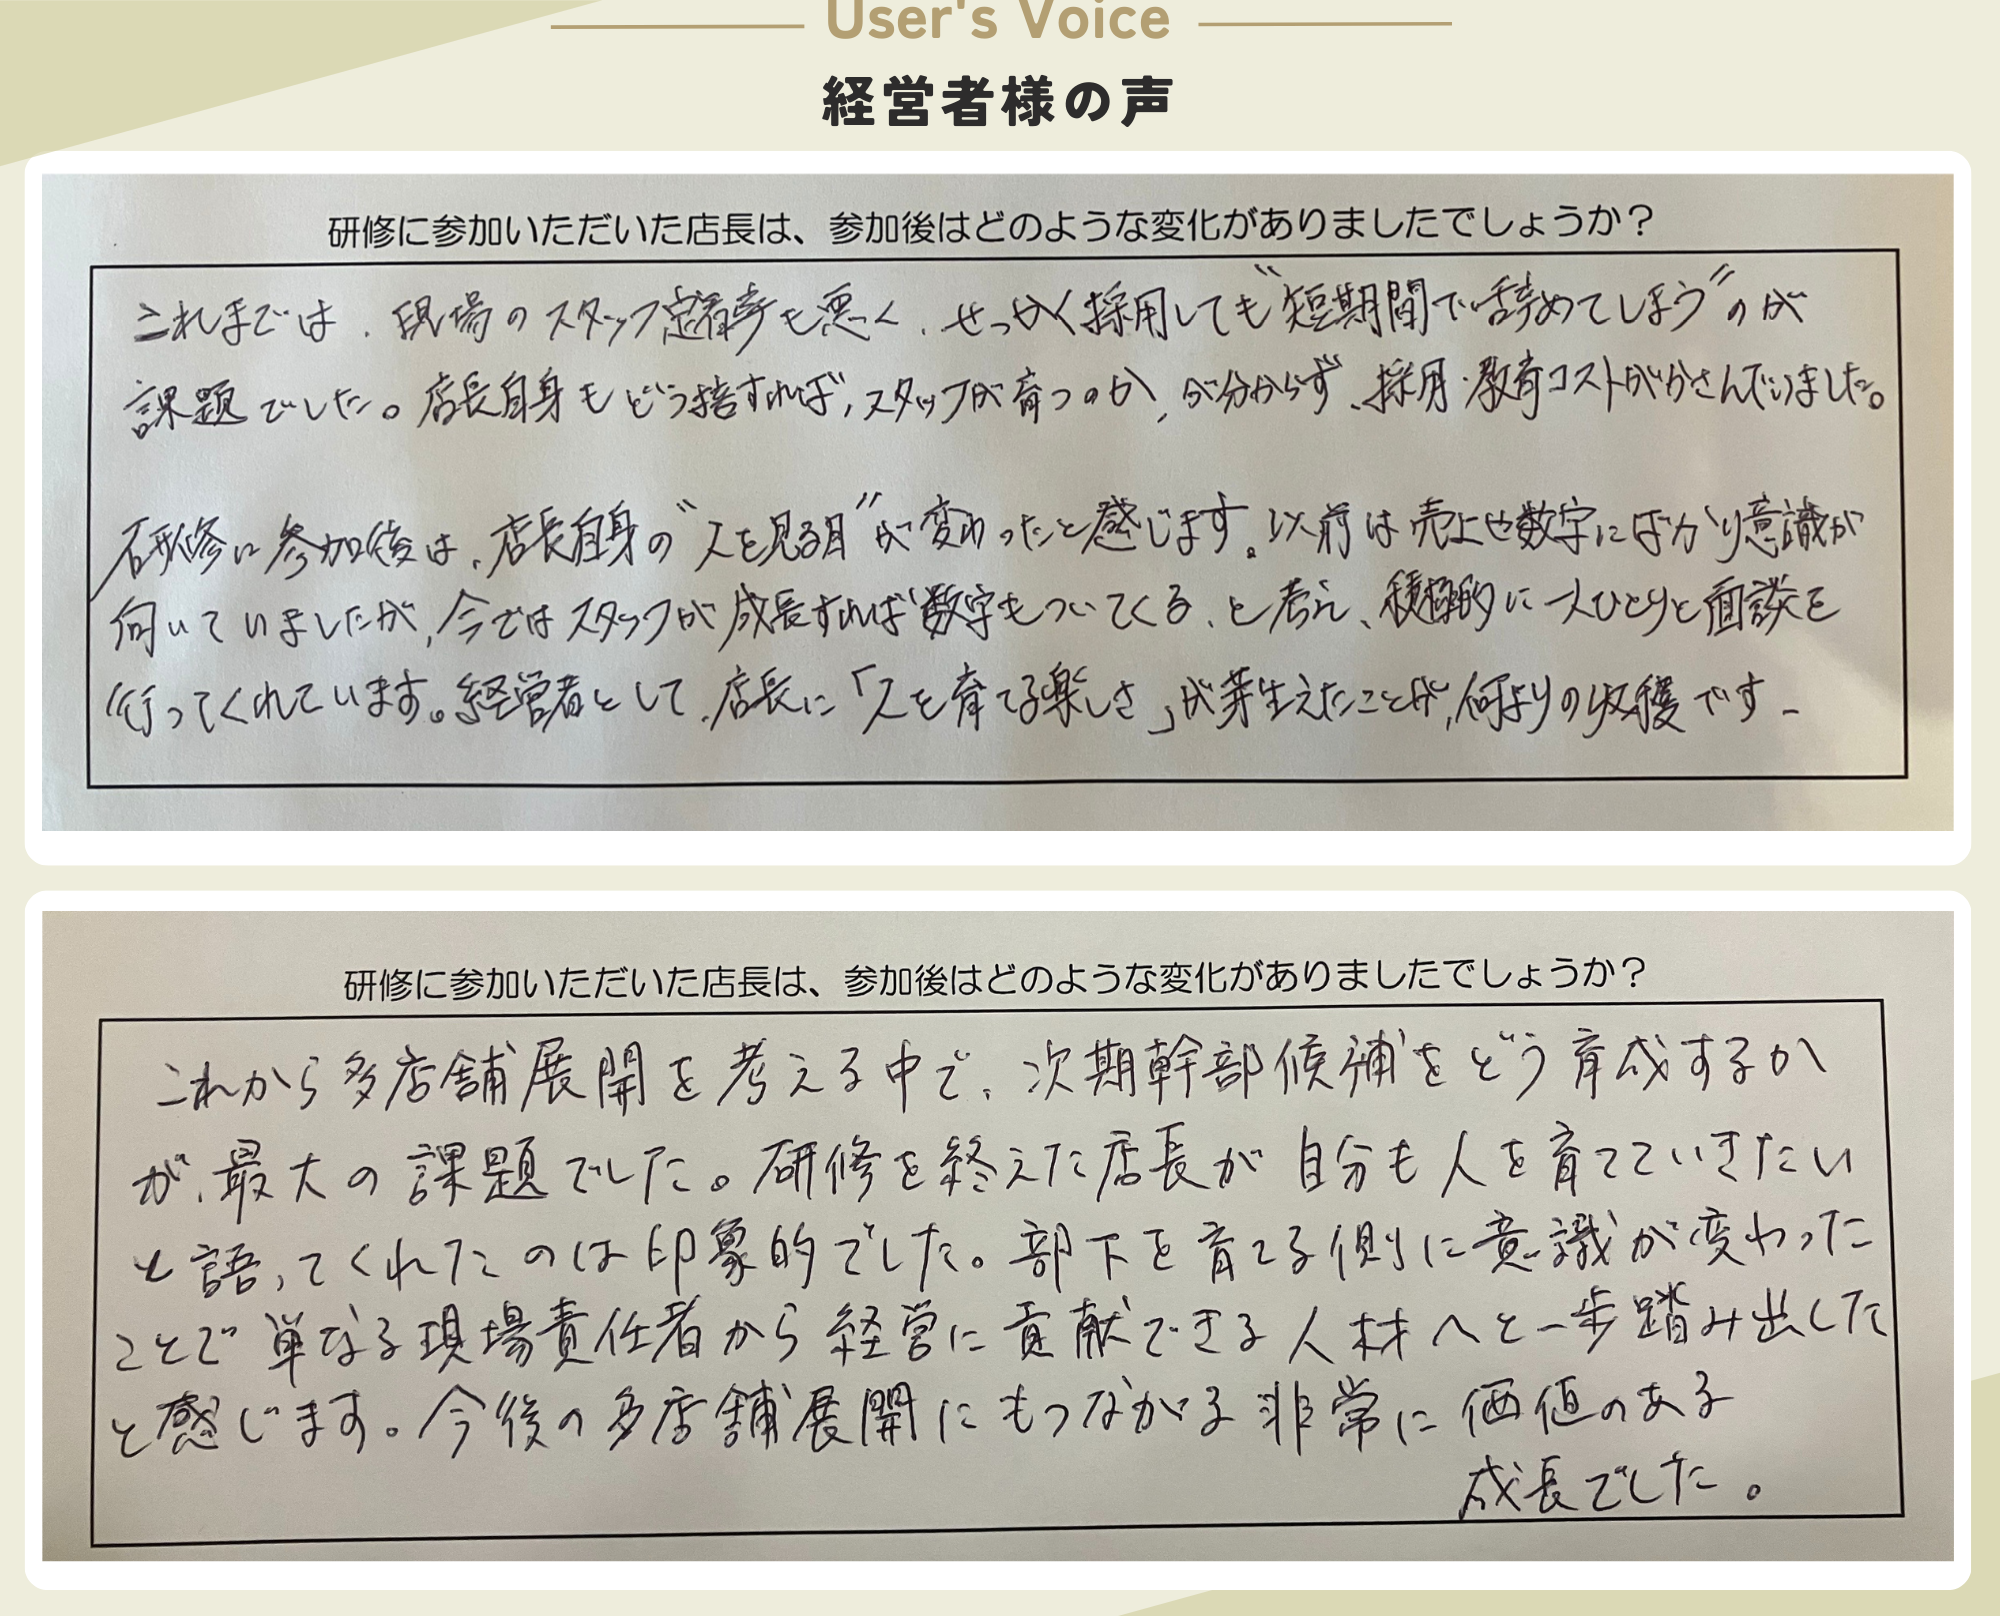 User's Voice
経営者様の声
研修に参加いただいた店長は、参加後はどのような変化がありましたでしょうか？
これまでは、現場のスタッフ定着率も悪く、せっかく採用しても"短期間で辞めてしまう"のが
課題でした。店長自身もどう接すれば、スタッフが育つのか、が分からず、採用・教育コストがかさんでいました。
研修に参加後は、店長自身の"人を見る目"が変わったと感じます。以前は売上や数字にばかり意識が
向いていましたが、今ではスタッフが成長すれば数字もついてくる、と考え、積極的に一人ひとりと面談を
行ってくれています。経営者として、店長に「人を育てる楽しさ」が芽生えたことが、何よりの収穫です。
研修に参加いただいた店長は、参加後はどのような変化がありましたでしょうか？
これから多店舗展開を考える中で、次期幹部候補をどう育成するか
が、最大の課題でした。研修を終えた店長が自分も人を育てていきたい
と語ってくれたのは印象的でした。部下を育てる側に意識が変わった
ことで単なる現場責任者から経営に貢献できる人材へと一歩踏み出した
と感じます。今後の多店舗展開にもつながる非常に価値のある
成長でした。